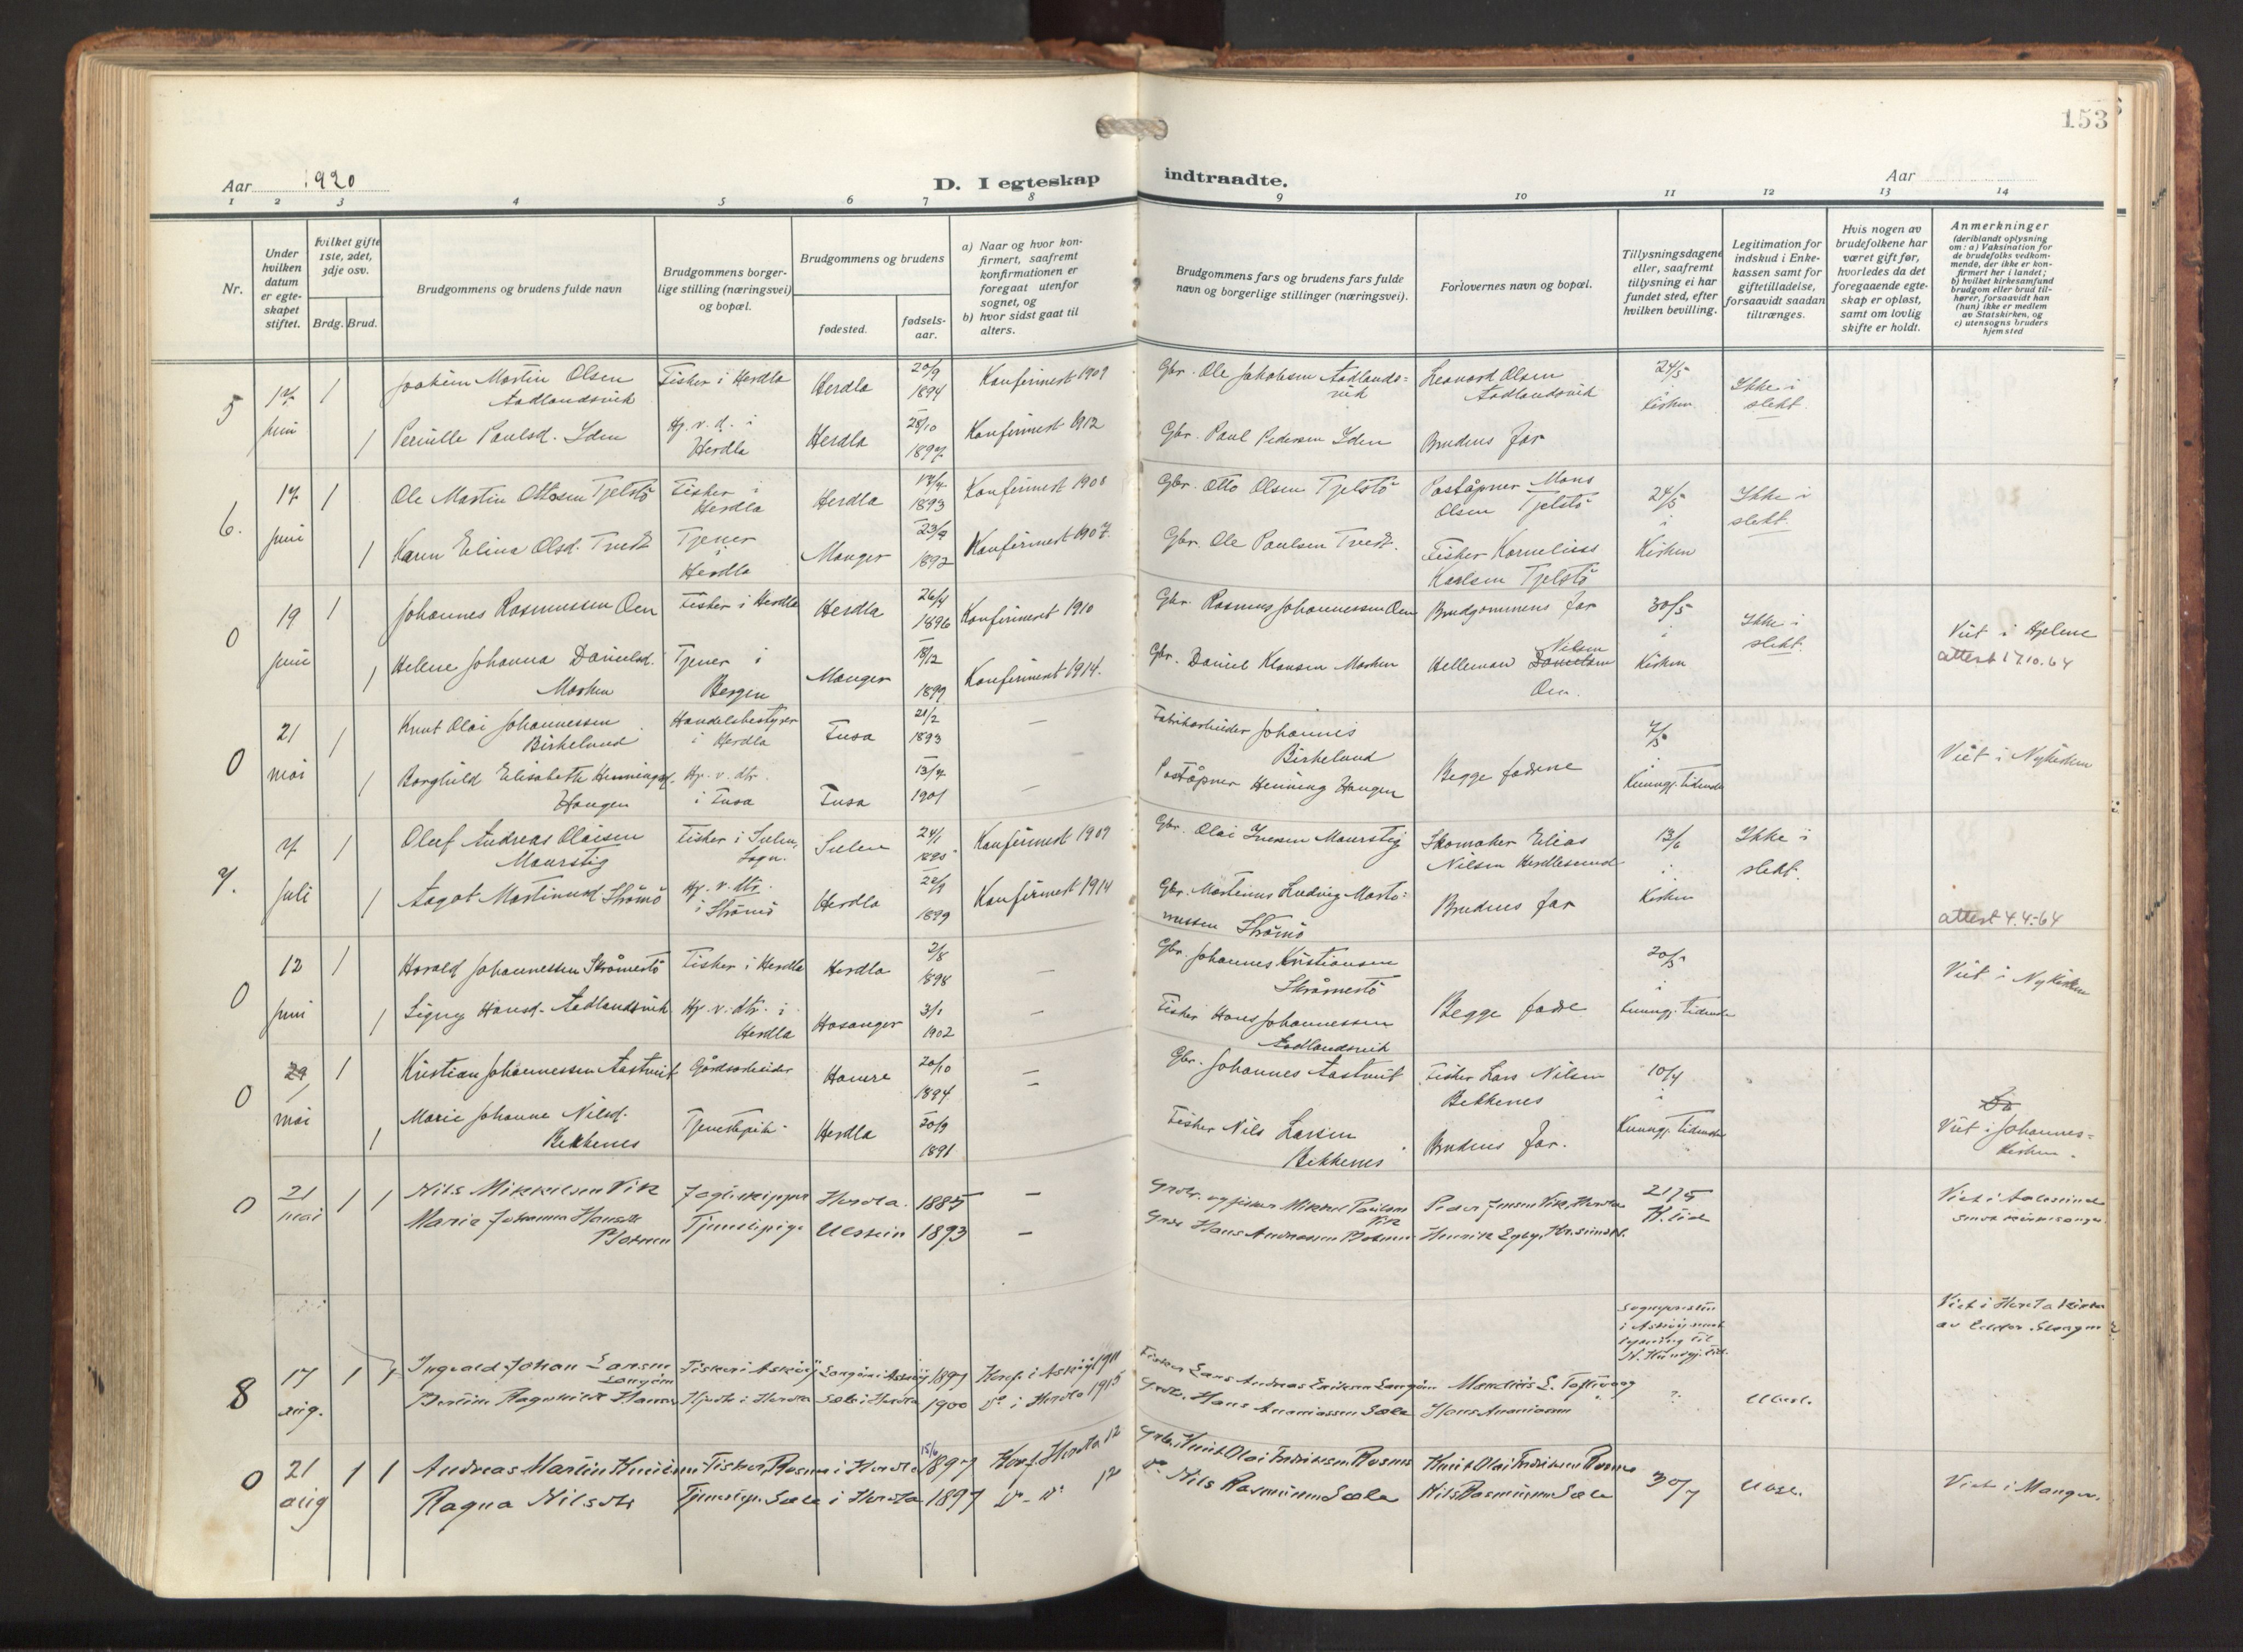 153
Aar 1920
D. I egteskap indtraadte.
Aar
1 2 3 4 5 6 7 8 9 10 11 12 13 14
Nr.
Under hvilken datum er egteskapet stiftet.
Hvilket gifte 1ste, 2det, 3dje osv.
Brdg. Brud.
Brudgommens og brudens fulde navn
Brudgommens borgerlige stilling (næringsvei) og bopæl.
Brudgommens og brudens
fødested.
fødselsaar.
a) Naar og hvor konfirmert, saafremt konfirmationen er foregaat utenfor sognet, og
b) hvor sidst gaat til alters.
Brudgommens fars og brudens fars fulde navn og borgerlige stillinger (næringsvei).
Forlovernes navn og bopæl.
Tillysningsdagene eller, saafremt tillysning ei har fundet sted, efter hvilken bevilling.
Legitimation for indskud i Enkekassen samt for giftetilladelse, forsaavidt saadan tiltrænges.
Hvis nogen av brudefolkene har været gift før, hvorledes da det foregaaende egteskap er opløst, samt om lovlig skifte er holdt.
Anmerkninger
(deriblandt oplysning om: a) Vaksination for de brudefolks vedkommende, der ikke er konfirmert her i landet;
b) hvilket kirkesamfund brudgom eller brud tilhører, forsaavidt han (hun) ikke er medlem av Statskirken, og
c) utensogns bruders hjemsted
5 17 juni 1 Joakim Martin Olsen Aadlandsvik Fisker i Herdla Herdla 1894 Konfirmert 1909 Gbr. Ole Jakobsen Aadlandsvik Leonard Olsen Aadlandsvik 24/5 i Kirken Ikke i slekt.
1 Pernille Paulsd. Iden Hj. v. d. i Herdla Herdla 28/10 1897 Konfirmert 1912 Gbr. Paul Pedersen Iden Brudens far
6. 17 juni 1 Ole Martin Ottosen Tjelstö Fisker i Herdla Herdla 17/4 1893 Konfirmert 1908 Gbr. Otto Olsen Tjelstö Poståpner Mons Olsen Tjelstö 24/5 i Kirken Ikke i slekt.
1 Karen Elina Olsd. Tvedt Tjener i Herdla Manger 1892 Konfirmert 1907. Gbr. Ole Paulsen Tvedt. Fisker Kornelius Karlsen Tjelstö
0 19 juni 1 Johannes Rasmussen Oen Fisker i Herdla Herdla 26/4 1896 Konfirmert 1910 Gbr. Rasmus Johannessen Oen Brudgommens far 30/5 i Kirken Ikke i slekt. Viet i Hjelme attest 17.10.64
1 Helene Johanna Danielsd. Marken Tjener i Bergen Manger 18/12 1899 Konfirmert 1914. Gbr. Daniel Klausen Marken Helleman Nilsen Oen.
0 21 mai 1 Knut Olai Johannessen Birkeland Handelsbestyrer i Herdla Fusa 1893 — Fabrikarbeider Johannes Birkeland Begge fædrene 7/5 i Kunngj. tidende Viet i Nykirken
1 Borghild Elisabeth Henningsd. Haugen Hj. v. dtr. i Fusa Fusa 13/4 1901 — Poståpner Henning Haugen
7. 7 juli 1 Oluf Andreas Olaisen Maurstig Fisker i Sulen, Sogn. Sulen 24/1 Konfirmert 1909 Gbr. Olai Iversen Maurstig Skomaker Elias Nilsen Herdlesund 13/6 i Kirken Ikke i slekt.
1 Aagot Martinusd. Strömö Hj. v. dtr. i Strömö Herdla 1899 Konfirmert 1914 Gbr. Martinus Ludvig Martinussen Strömö Brudens far attest 4.4.-64
0 12 juni 1 Harald Johannessen Skråmestö Fisker i Herdla Herdla 2/8 1898 — Gbr. Johannes Kristiansen Skråmestö Begge fædre 20/5 i kunngj. tidende Viet i Nykirken
1 Signy Hansd. Aadlandsvik Hj. v. dtr. i Herdla Hosanger 3/1 1902 — Fisker Hans Johannessen Aadlandsvik
0 29 mai 1 Kristian Johannessen Aastveit Gårdsarbeider Hamre 20/10 1894 — Gbr. Johannes Aastveit Fisker Lars Nilsen Bekkenes 10/4 i Kunngj. tidende Viet i Johanneskirken.
1 Marie Johanne Nilsd. Bekkenes Tjenestepike Herdla 20/9 1891 — Fisker Nils Larsen Bekkenes Brudens far.
0 21 mai 1 1 Nils Mikkelsen Vik Jagtskipper Herdla. 1885 — Grdbr. og fisker Mikkel Paulsen Vik Peder Jensen Vik, Herdla 21/5 K. tid
Marie Johanna Hansdtr Tjenestepige Ulstein 1893 — Grdbr Hans Andreassen
8 17 aug. 1 1 Ingvald Johan Larsen Langöen Fisker i Asköy Langöen i Asköy 1897 Konf. i Asköy 1911 Fisker Lars Andreas Eriksen Langöen Viet i Herdla kirke
Bertine Ragnhilde Hansd Hjemme i Herdla Sæle i Herdla 1900 do i Herdla 1915 Grdbr. Hans Ananiassen Sæle Hans Ananiassen ?
0 21 aug 1 1 Andreas Martin Knutsen Fisker, Rosnes i Herdla 15/6 1897 Konf. Herdla 12 Grdbr. Knut Olai Fredriksen Rosnes Knut Olai Fredriksen Rosnes 30/7 Viet i Manger.
Ragna Nilsdtr Tjenestep. Sæle i Herdla 1897 do - do 12 do Nils Rasmussen Sæle Nils Rasmussen Sæle